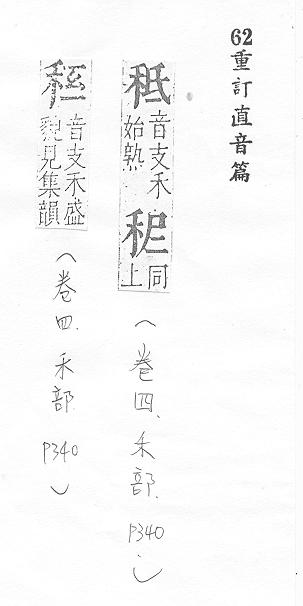 62重訂直音篇
秪
音支禾
始熟
同
上
（卷四、禾部、P340、）
音支禾盛
貌見集韻
（卷四、禾部、P340）